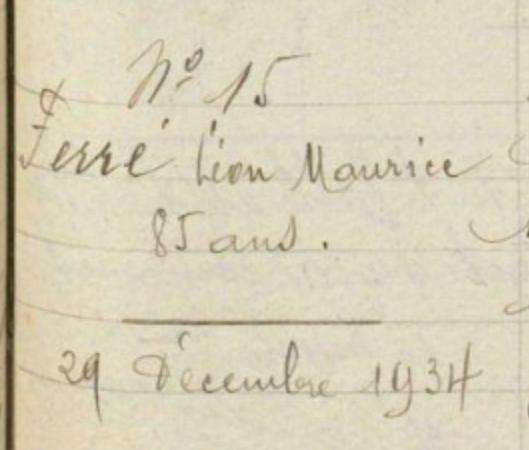 N° 15
Ferré Léon Maurice
85 ans.
29 Décembre 1934